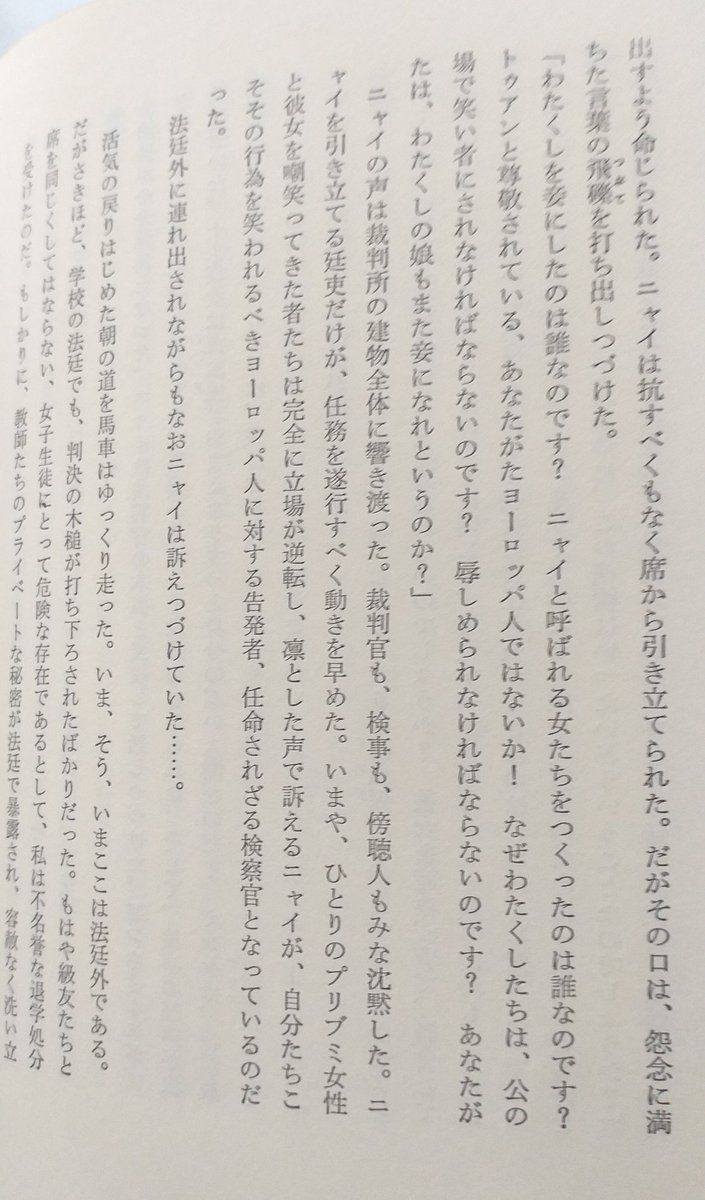 出すよう命じられた。ニャイは抗すべくもなく席から引き立てられた。だがその口は、怨念に満
ちた言葉の飛礫を打ち出しつづけた。
つぶて
「わたくしを妾にしたのは誰なのです？　ニャイと呼ばれる女たちをつくったのは誰なのです？
トゥアンと尊敬されている、あなたがたヨーロッパ人ではないか！　なぜわたくしたちは、公の
場で笑い者にされなければならないのです？　辱しめられなければならないのです？　あなたが
たは、わたくしの娘もまた妾になれというのか？」
ニャイの声は裁判所の建物全体に響き渡った。裁判官も、検事も、傍聴人もみな沈黙した。ニ
ャイを引き立てる廷吏だけが、任務を遂行すべく動きを早めた。いまや、ひとりのプリブミ女性
と彼女を嘲笑ってきた者たちは完全に立場が逆転し、凛とした声で訴えるニャイが、自分たちこ
そその行為を笑われるべきヨーロッパ人に対する告発者、任命されざる検察官となっているのだ
った。
法廷外に連れ出されながらもなおニャイは訴えつづけていた……。
活気の戻りはじめた朝の道を馬車はゆっくり走った。いま、そう、いまここは法廷外である。
だがさきほど、学校の法廷でも、判決の木槌が打ち下ろされたばかりだった。もはや級友たちと
席を同じくしてはならない、女子生徒にとって危険な存在であるとして、私は不名誉な退学処分
を受けたのだ。もしかりに、教師たちのプライベートな秘密が法廷で暴露され、容赦なく洗い立